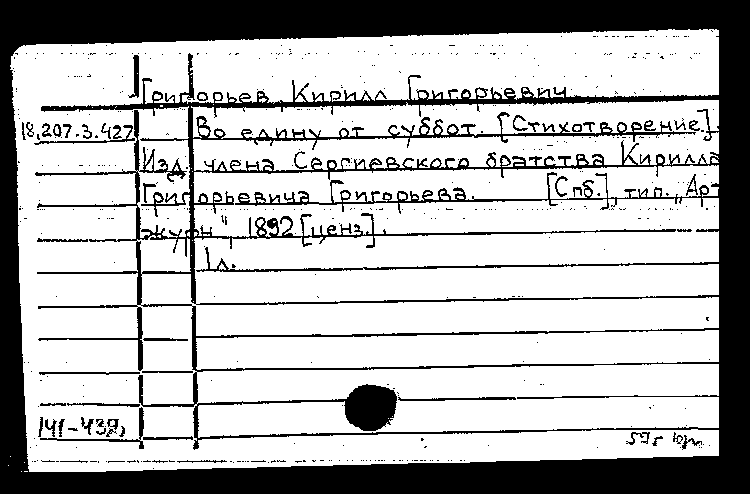 Григорьев, Кирилл Григорьевич.
18.207.3.427 Во едину от суббот. [Стихотворение].
Изд. члена Сергиевского братства Кирилла
Григорьевича Григорьева. [Спб.], тип. „Арт-
журн", 1892 [ценз.].
1л.